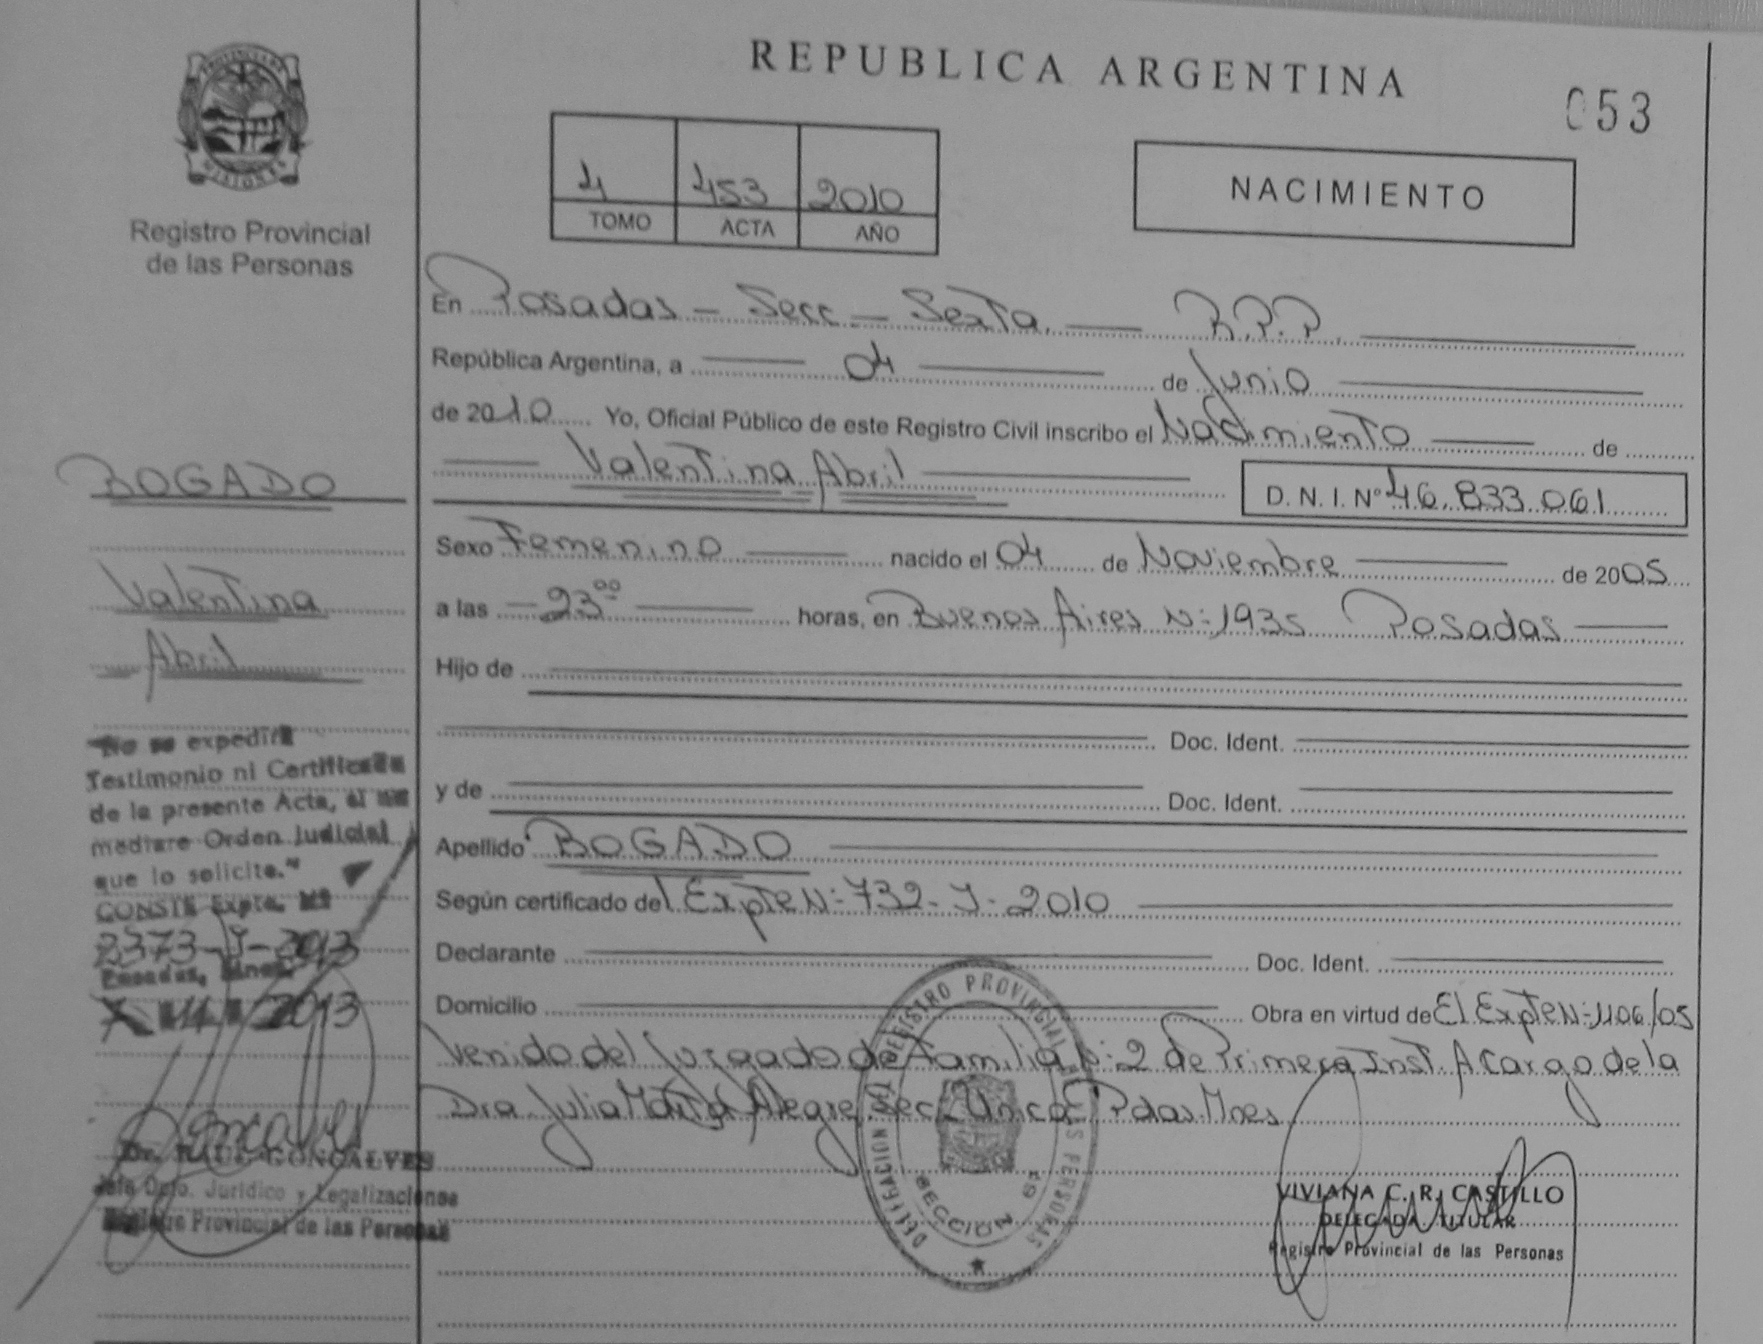 PROVINCIA DE
MISIONES
Registro Provincial
de las Personas
REPUBLICA ARGENTINA
053
4 453 2010
TOMO ACTA AÑO
NACIMIENTO
En Posadas - Secc - Sexta. R.P.P.
República Argentina, a 04 de Junio
de 2010 Yo, Oficial Público de este Registro Civil inscribo el Nacimiento de
Valentina Abril D. N. I. Nº 46.833.061
Sexo Femenino nacido el 04 de Noviembre de 2005
a las 23:00 horas, en Buenos Aires N:1935 Posadas
Hijo de
Doc. Ident.
y de Doc. Ident.
Apellido BOGADO
Según certificado del Expte N: 732-J-2010
Declarante Doc. Ident.
Domicilio Obra en virtud de El Expte N:1106/05
Venido del Juzgado de Familia N:2 de Primera Inst. A Cargo de la
Dra. Julia Marta Alegre, Sec. Única. Pdas. Mnes.
BOGADO
Valentina
Abril
"No se expedirá
Testimonio ni Certificado
de la presente Acta, si no
mediare Orden Judicial
que lo solicite."
CONSTE Expte. Nº
2373-J-2013
Posadas, Mnes.
2013
Dr. RAUL GONCALVES
Jefe Dpto. Jurídico y Legalizaciones
Registro Provincial de las Personas
DELEGACION REGISTRO PROVINCIAL DE LAS PERSONAS
SECCION 6ª
VIVIANA C. R. CASTILLO
DELEGADA TITULAR
Registro Provincial de las Personas